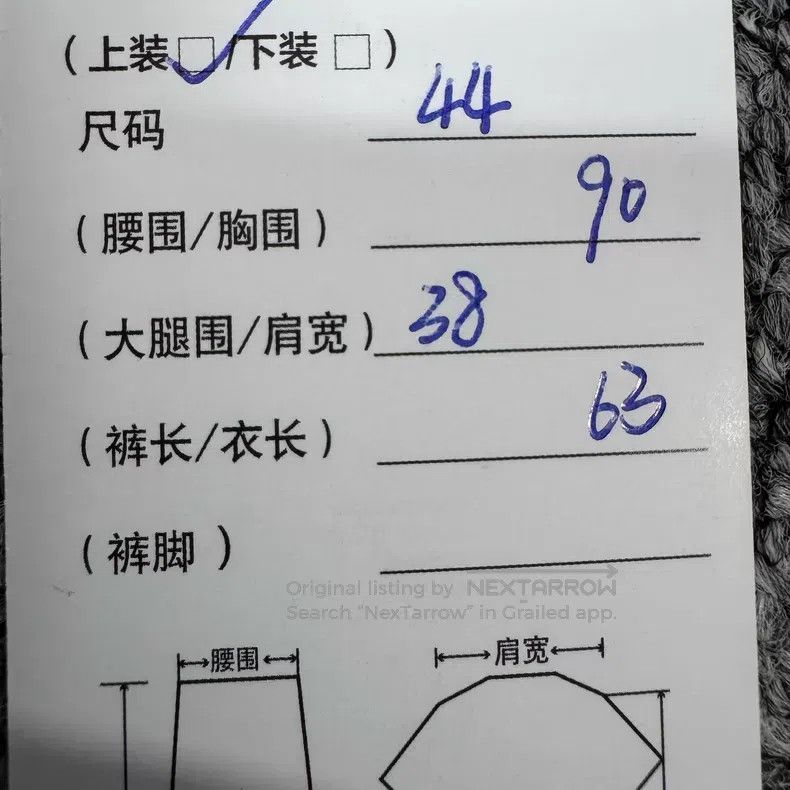 (上装□/下装□)
尺码 44
(腰围/胸围) 90
(大腿围/肩宽) 38
(裤长/衣长) 63
(裤脚)
Original listing by NEXTARROW
Search “NexTarrow” in Grailed app.
腰围 肩宽